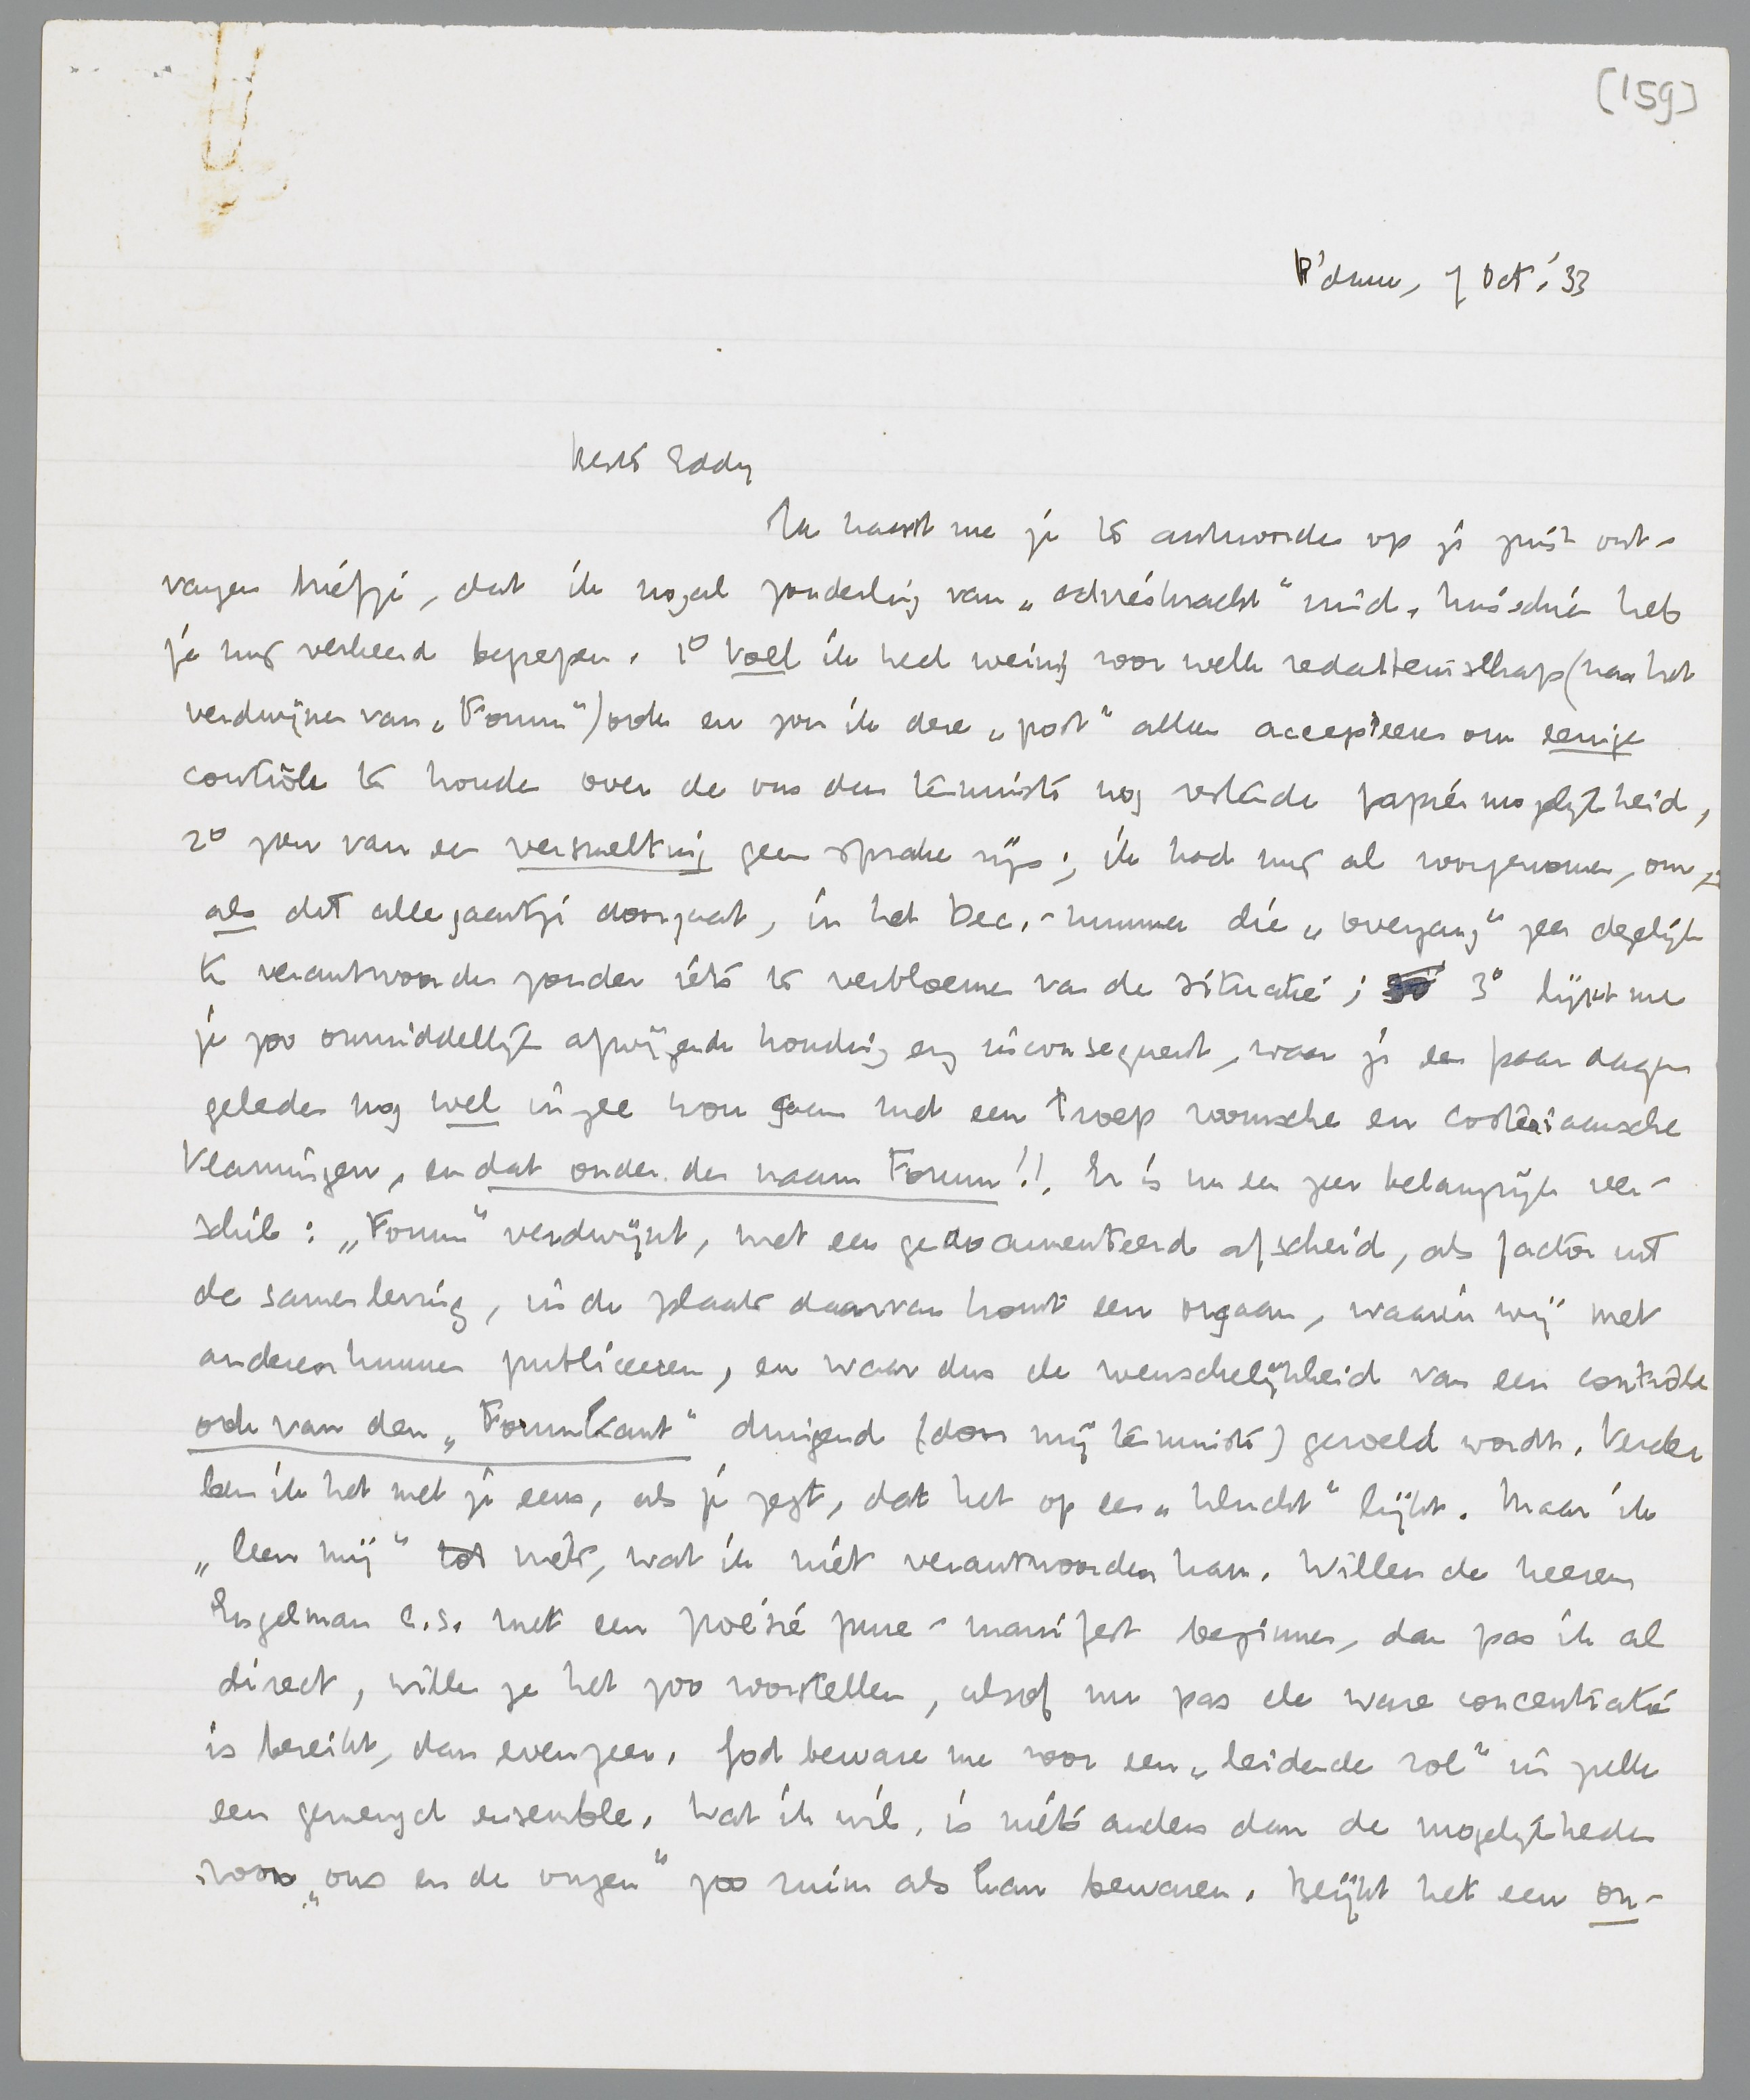 [159]
R'dam, 7 Oct. '33
Beste Eddy
Ik haast me je te antwoorden op je juist ont-
vangen briefje, dat ik nogal zonderling van „ vind. Misschien heb
je mij verkeerd begrepen. 1° voel ik heel weinig voor welk redacteurschap (na het
verdwijnen van „Forum") ook en zou ik deze „post" alleen accepteeren om eenige
contrôle te houden over de ons dan tenminste nog restende papiermogelijkheid,
2° zou van een versmelting geen sprake zijn; ik had mij al voorgenomen, om,
als dit allegaartje doorgaat, in het Dec.-nummer die „overgang" zeer degelijk
te verantwoorden zonder iets te verbloemen van de situatie; 3° lijkt me
je zoo onmiddellijk afwijzende houding erg inconsequent, waar je een paar dagen
geleden nog wel in zee wou gaan met een troep roomsche en costeriaansche
Vlamingen, en dat onder den naam Forum!!. Er is nu een zeer belangrijk ver-
schil: „Forum" verdwijnt, met een gedocumenteerd afscheid, als factor uit
de samenleving, in de plaats daarvan komt een orgaan, waarin wij met
anderen kunnen publiceeren, en waar dus de wenschelijkheid van een contrôle
ook van den „Forumkant" dringend (door mij tenminste) gevoeld wordt. Verder
ben ik het met je eens, als je zegt, dat het op een „klucht" lijkt. Maar ik
„leen mij" tot niets, wat ik niet verantwoorden kan. Willen de heeren
Engelman c.s. met een poésie pure-manifest beginnen, dan pas ik al
direct, willen ze het zoo voorstellen, alsof nu pas de ware concentratie
is bereikt, dan evenzeer. God beware me voor een „leidende rol" in zulk
een gemengd ensemble. Wat ik wil, is niets anders dan de mogelijkheden
voor „ons en de onzen" zoo ruim als kan bewaren. Blijkt het een on-